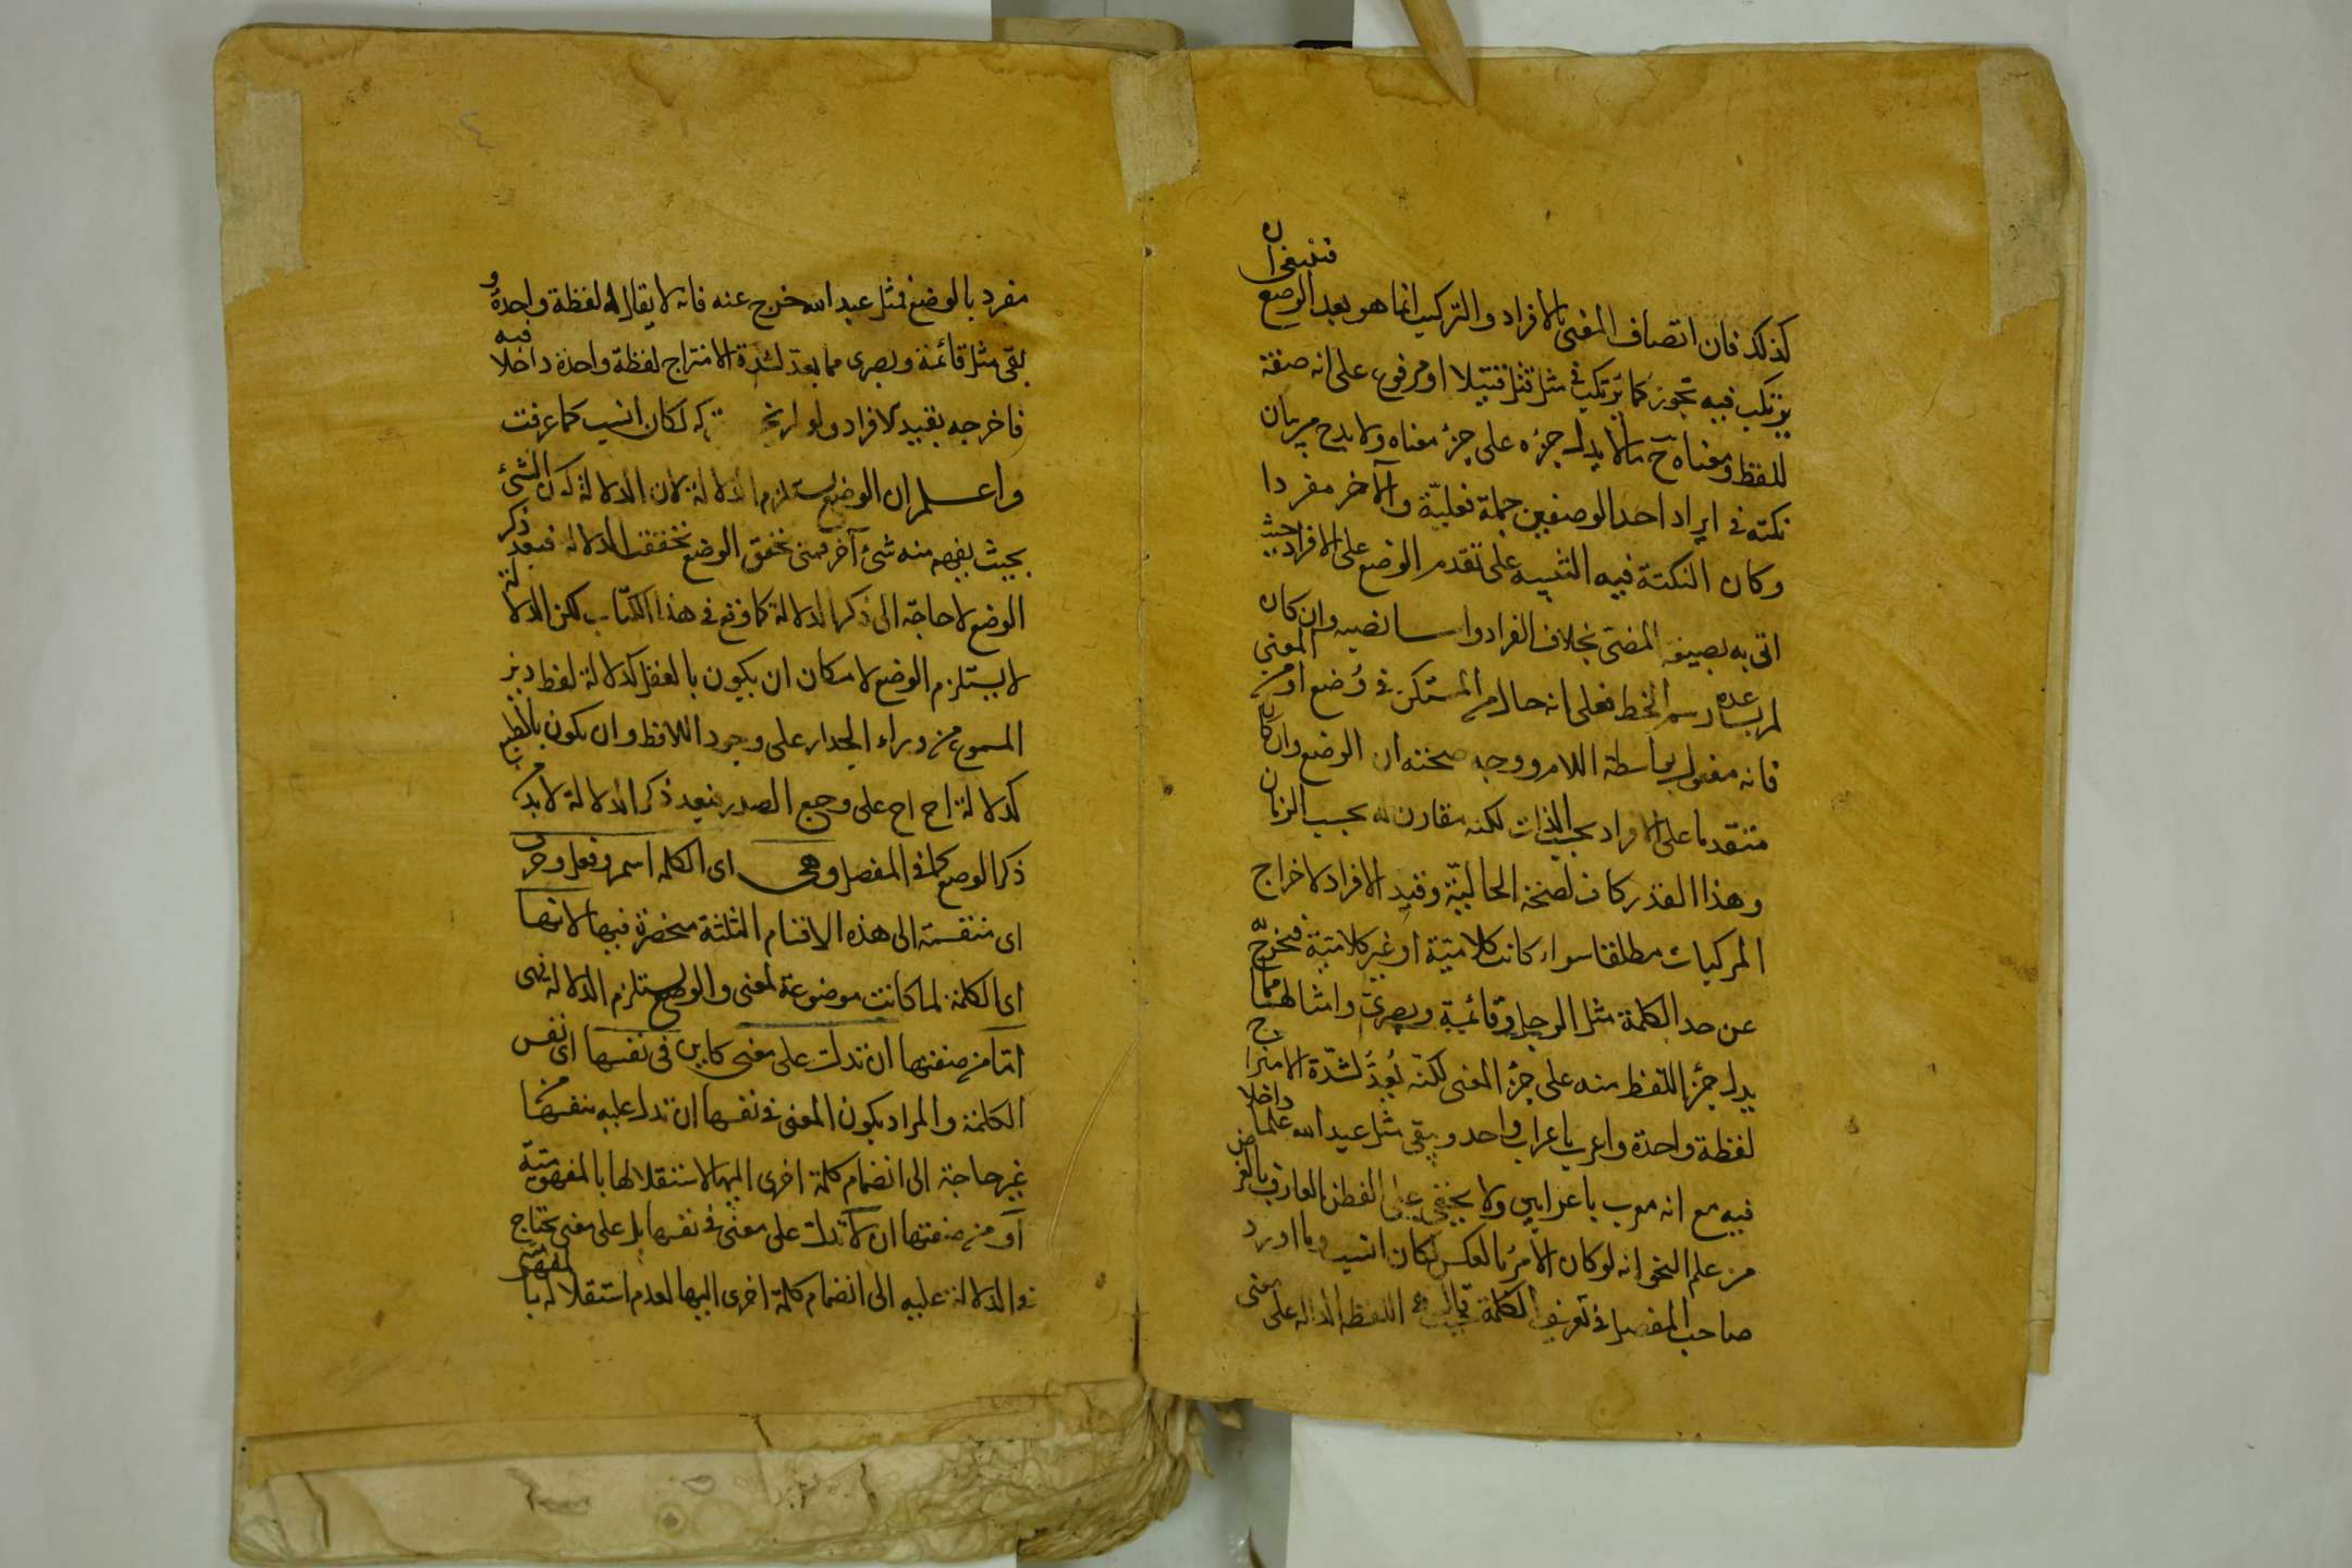 كذلك فان اتصاف المعنى بالافراد والتركيب انما هو بعد الوضع فينبغي ان
يرتكب فيه تجوز كما يرتكب في مثل من قتل قتيلا او مرفوع على انه صفة
للفظ ومعناه ح ما لا يدل جزءه على جزء معناه ولا بد ح من بيان
نكتة في ايراد احد الوصفين جملة فعلية والآخر مفردا
وكان النكتة فيه التنبيه على تقدم الوضع على الافراد حيث
اتى به بصيغة المضى بخلاف الافراد واما نصبه وان كان
لم يساعده رسم الخط فعلى انه حال من المستكن في وضع او من المعنى
فانه مفعول بواسطة اللام ووجه صحته ان الوضع وان كان
متقدما على الافراد بحسب الذات لكنه مقارن له بحسب الزمان
وهذا القدر كاف لصحة الحالية وقيد الافراد لاخراج
المركبات مطلقا سواء كانت كلامية او غير كلامية فيخرج به
عن حد الكلمة مثل الرجل وقائمة وبصرى وامثالها مما
يدل جزء اللفظ منه على جزء المعنى لكنه يعد لشدة الامتزاج
لفظة واحدة واعرب باعراب واحد وبقى مثل عبد الله علما داخلا
فيه مع انه معرب باعرابين ولا يخفى على الفطن العارف بالغرض
من علم النحو انه لو كان الامر بالعكس لكان انسب وما اورد
صاحب المفصل في تعريف الكلمة قيل هي اللفظة الدالة على معنى
مفرد بالوضع فمثل عبد الله خرج عنه فانه لا يقال له لفظة واحدة و
بقى مثل قائمة وبصرى مما يعد لشدة الامتزاج لفظة واحدة داخلا فيه
فاخرجه بقيد الافراد ولو لم يخرجه بتركه لكان انسب كما عرفت
واعلم ان الوضع يستلزم الدلالة لان الدلالة كون الشئ
بحيث يفهم منه شئ آخر فمتى تحقق الوضع تحققت الدلالة فبعد ذكر
الوضع لا حاجة الى ذكر الدلالة كما وقع في هذا الكتاب لكن الدلالة
لا يستلزم الوضع لامكان ان يكون بالعقل كدلالة لفظ ديز
المسموع من وراء الجدار على وجود اللافظ وان يكون بالطبع
كدلالة اح اح على وجع الصدر فبعد ذكر الدلالة لا بد من
ذكر الوضع كما في المفصل وهى اى الكلمة اسم وفعل وحرف
اى منقسمة الى هذه الاقسام الثلثة منحصرة فيها لانها
اى الكلمة لما كانت موضوعة لمعنى والوضع يستلزم الدلالة فهى
اما من صفتها ان تدل على معنى كاين في نفسها اى نفس
الكلمة والمراد بكون المعنى في نفسها ان تدل عليه بنفسها من
غير حاجة الى انضمام كلمة اخرى اليها لاستقلالها بالمفهومية
او من صفتها ان لا تدل على معنى في نفسها بل على معنى تحتاج
في الدلالة عليه الى انضمام كلمة اخرى اليها لعدم استقلاله بالمفهومية